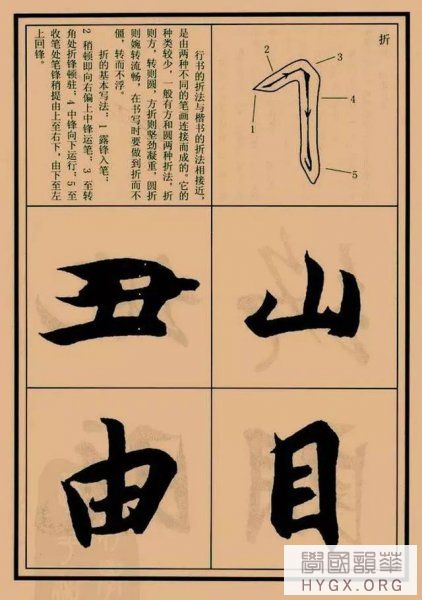 折
1
2
3
4
5
行书的折法与楷书的折法相接近,
是由两种不同的笔画连接而成的。它的
种类较少,一般有方和圆两种折法,折
则方,转则圆,方折则坚劲凝重,圆折
则婉转流畅,在书写时要做到折而不
僵,转而不浮。
折的基本写法:1 露锋入笔;
2 稍顿即向右偏上中锋运笔;3 至转
角处折锋顿驻;4 中锋向下运行;5 至
收笔处笔锋稍提由上至右下,由下至左
上回锋。
山
目
丑
由
華韻國學
HYGX.ORG